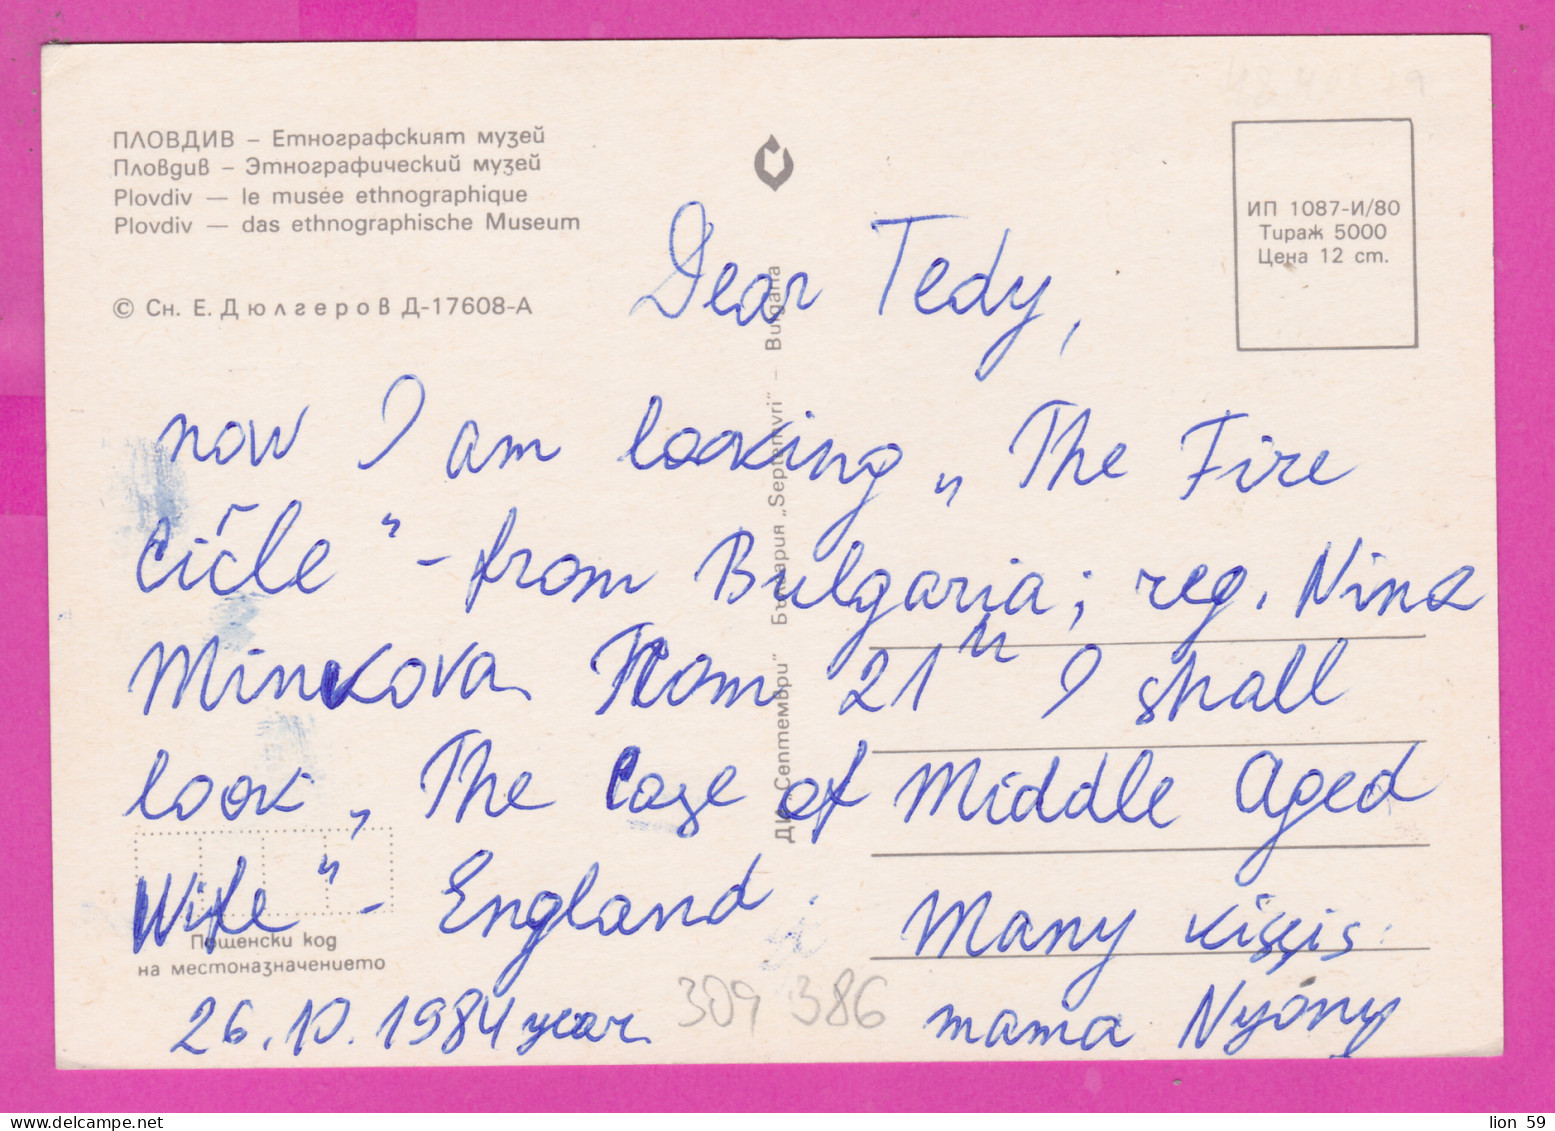 ПЛОВДИВ – Етнографският музей
Пловдив – Этнографический музей
Plovdiv — le musée ethnographique
Plovdiv — das ethnographische Museum
© Сн. Е. Дюлгеров Д-17608-А
ИП 1087-И/80
Тираж 5000
Цена 12 ст.
ДИ „Септември“ България „Septemvri“ – Bulgaria
Dear Tedy,
now I am looking „The Fire
Cicle" - from Bulgaria; reg. Nina
Minkova. From 21 h I shall
look „The Case of Middle Aged
Wife" - England.
Many kissis:
26.10.1984 year
mama Nyony
Пощенски код
на местоназначението
309 386
lion 59